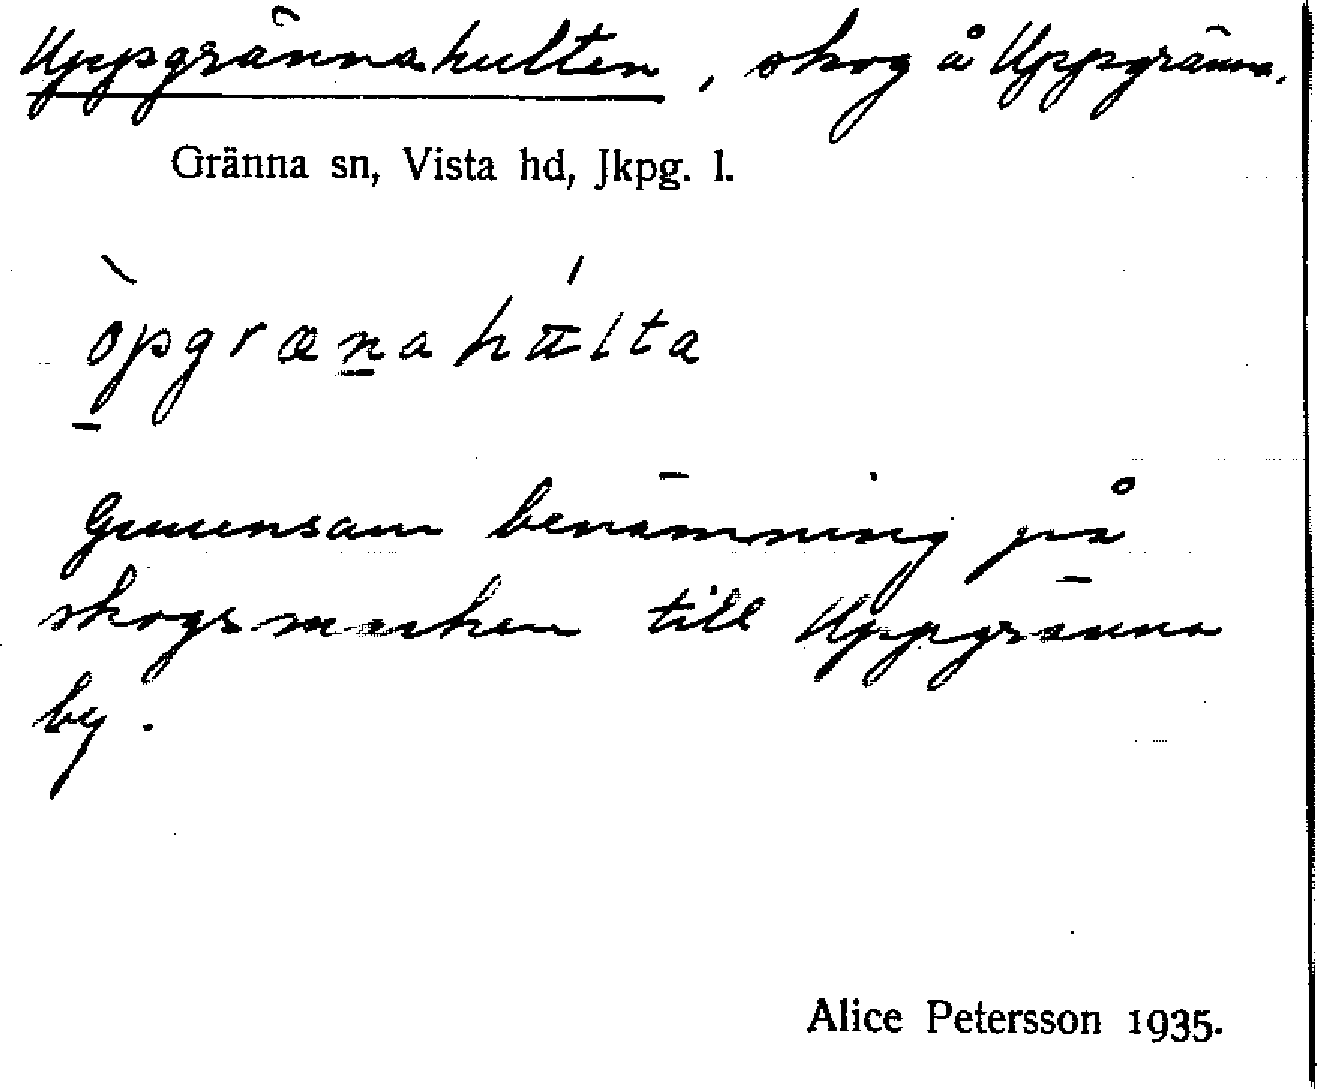 Uppgrännahulten, skog å Uppgränna.
Gränna sn, Vista hd, Jkpg. l.
òpgrænahúlta
Gemensam benämning på
skogsmarken till Uppgränna
by.
Alice Petersson 1935.